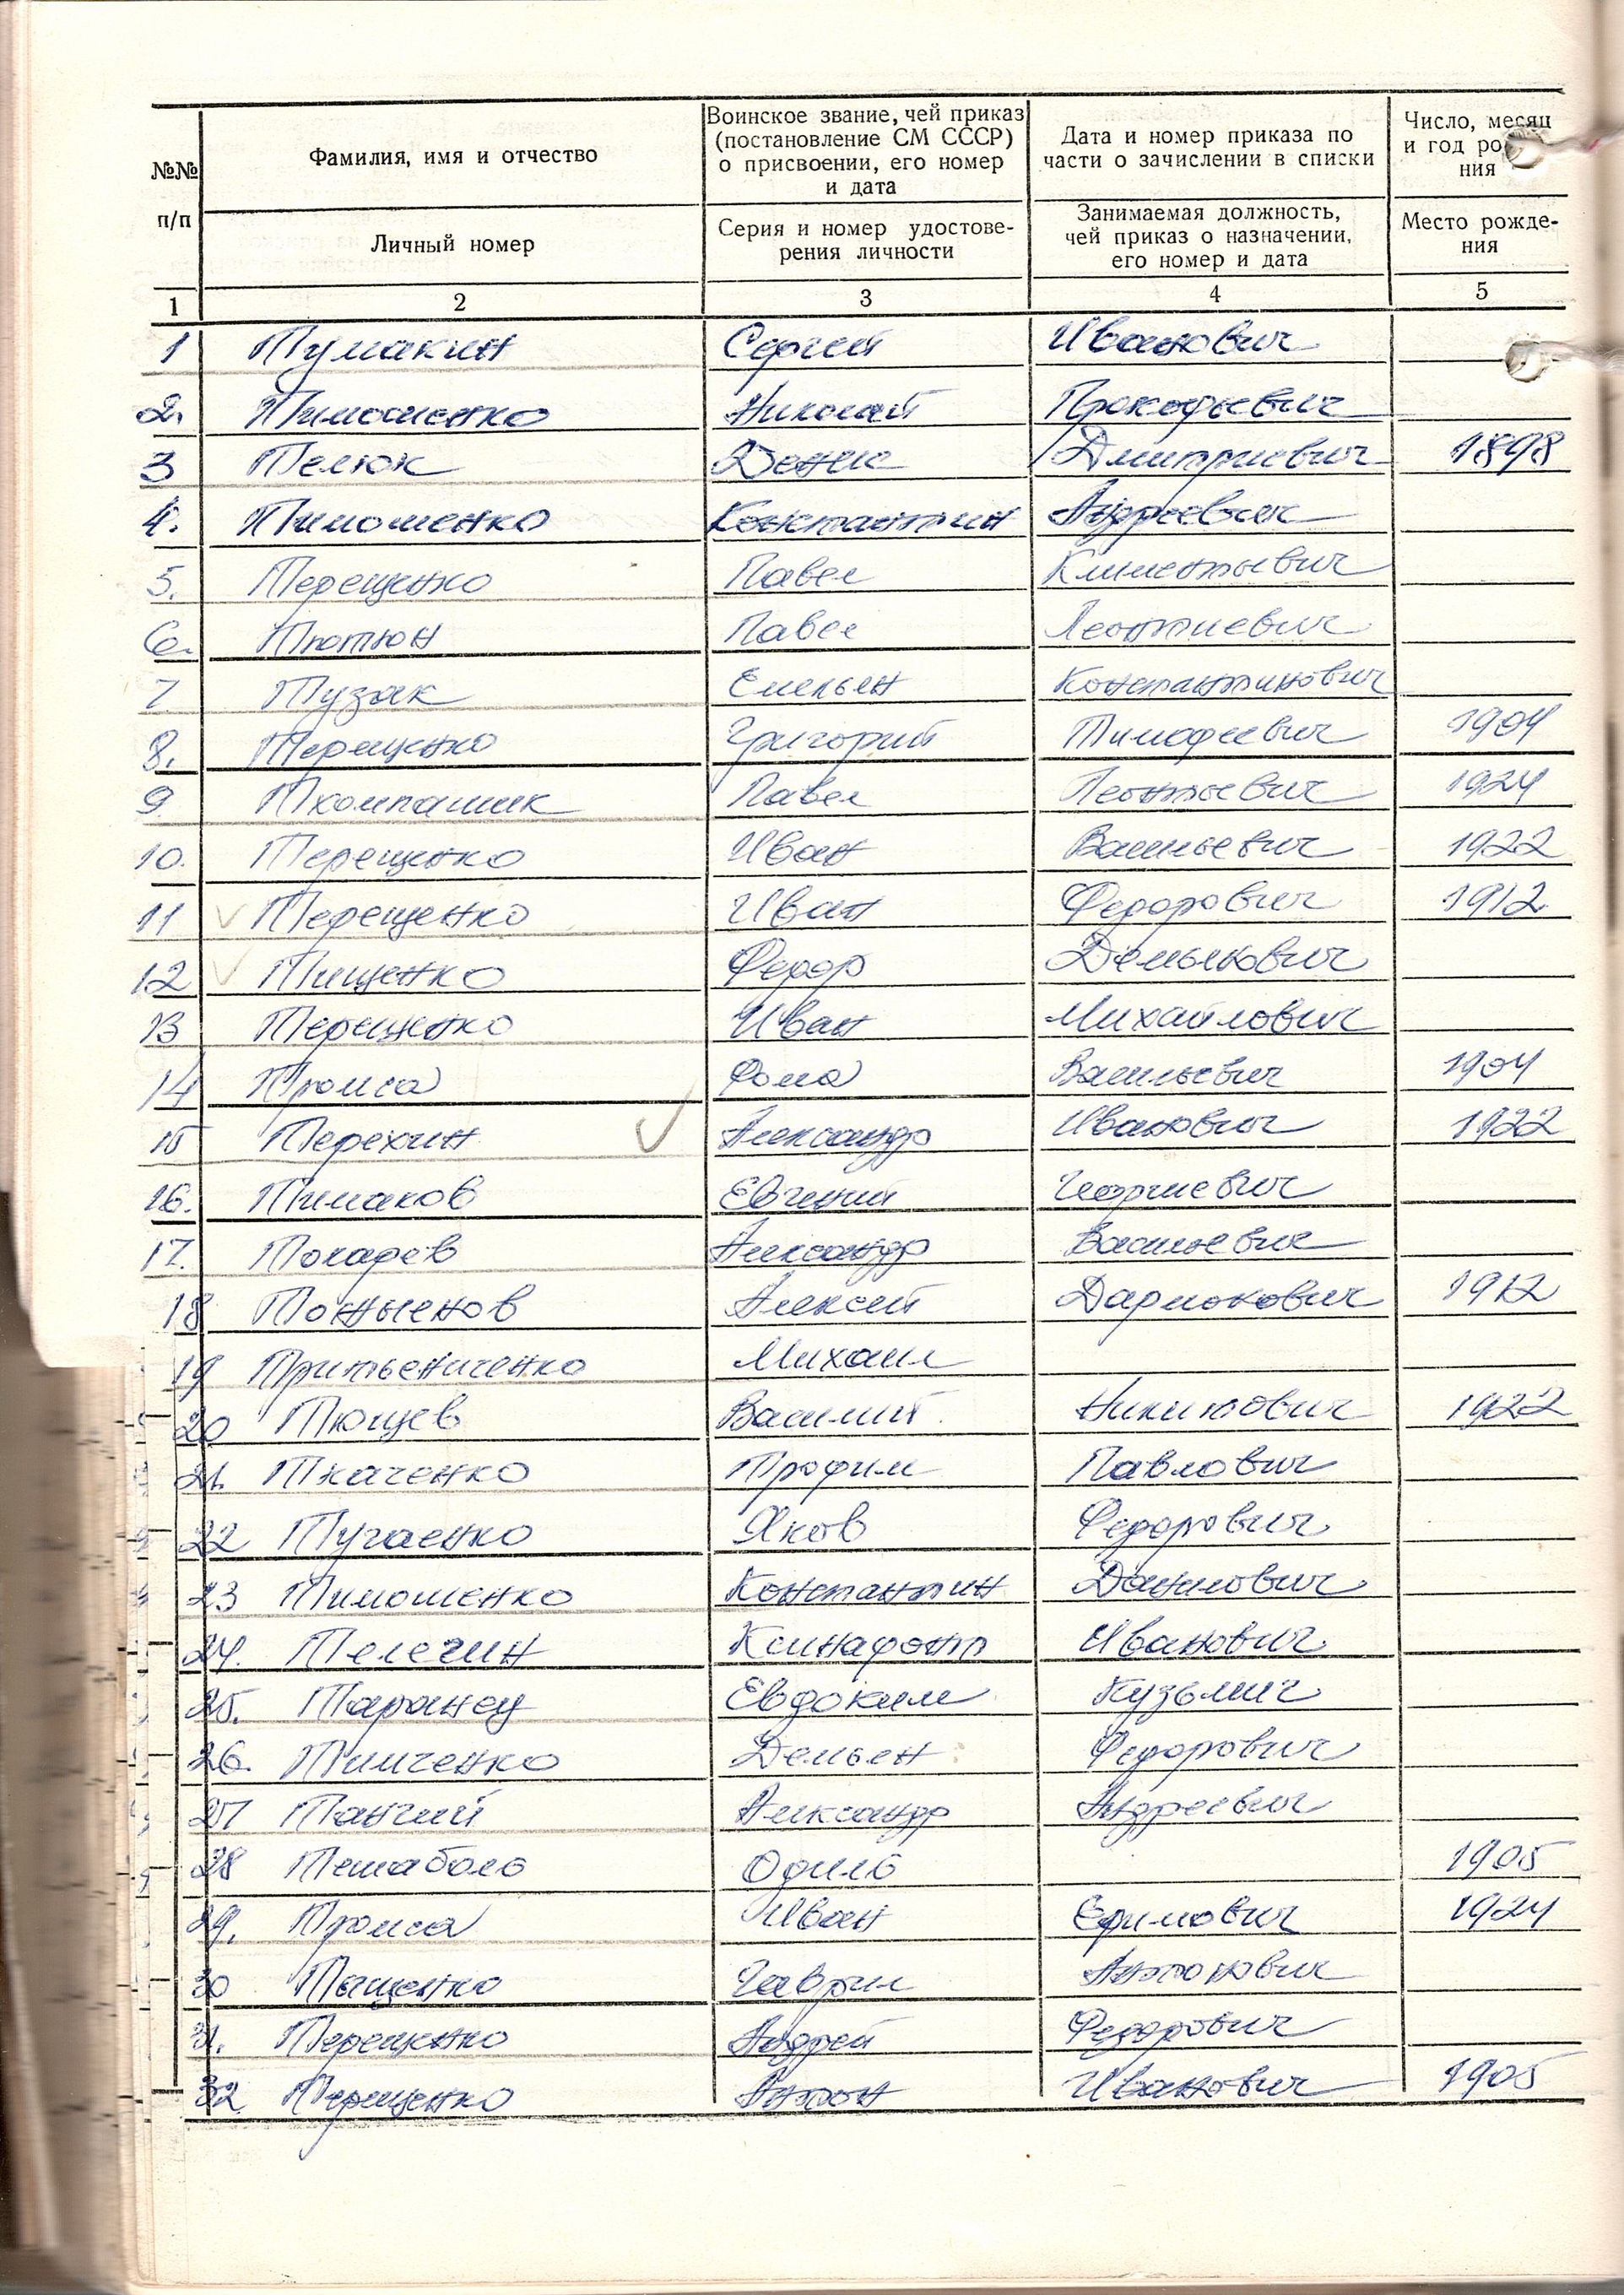 №№ п/п
Фамилия, имя и отчество
Воинское звание, чей приказ (постановление СМ СССР) о присвоении, его номер и дата
Дата и номер приказа по части о зачислении в списки
Число, месяц и год ро ния
Личный номер
Серия и номер удостове-рения личности
Занимаемая должность, чей приказ о назначении, его номер и дата
Место рожде-ния
1 2 3 4 5
1 Тумакин Сергей Иванович
2. Тимошенко Николай Прокофьевич
3 Телюк Денис Дмитриевич 1898
4. Тимошенко Константин Андреевич
5. Терещенко Павел Климентьевич
6. Тютюн Павел Леонтиевич
7. Тузак Емельян Константинович
8. Терещенко Григорий Тимофеевич 1904
9. Павел Леонтьевич 1924
10. Терещенко Иван Васильевич 1922
11 Терещенко Иван Федорович 1912
12 Тищенко Федор Демьянович
13 Терещенко Иван Михайлович
14 Фома Васильевич 1904
15 Терехин Александр Иванович 1922
16. Тимаков Евгений Георгиевич
17. Токарев Александр Васильевич
18 Алексей 1912
19 Михаил
20 Тющев Василий 1922
21. Ткаченко Трофим Павлович
22 Тугаенко Яков Федорович
23 Тимошенко Константин Данилович
24. Телегин Ксинафонт Иванович
25. Таранец Евдоким Кузьмич
26. Тимченко Демьян Федорович
27 Александр Андреевич
28 1905
29. Иван Ефимович 1924
30 Тыщенко Гаврил Антонович
31. Терещенко Андрей Федорович
32 Терещенко Антон Иванович 1905